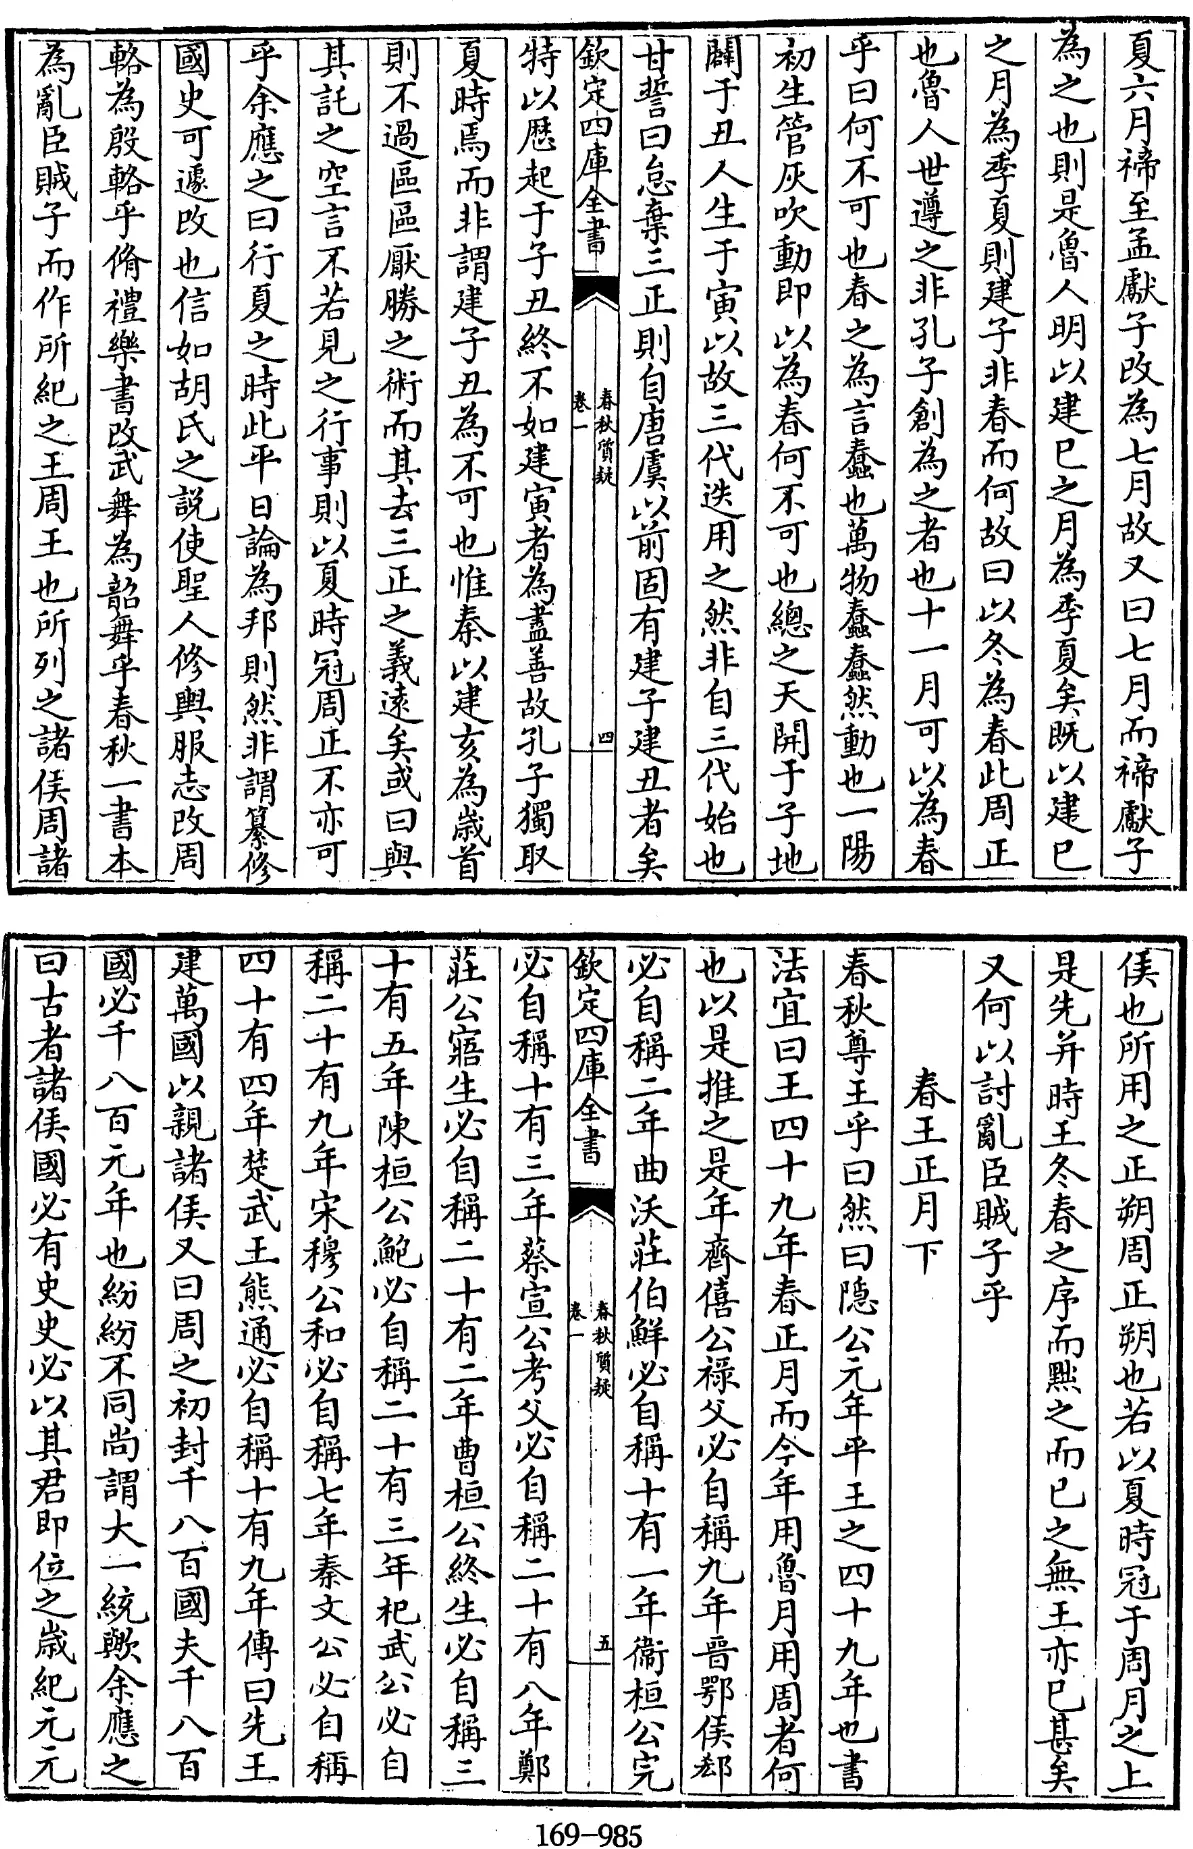 夏六月禘至孟獻子改為七月故又曰七月而禘獻子
為之也則是魯人明以建巳之月為季夏矣既以建巳
之月為季夏則建子非春而何故曰以冬為春此周正
也魯人世遵之非孔子創為之者也十一月可以為春
乎曰何不可也春之為言蠢也萬物蠢蠢然動也一陽
初生管灰吹動即以為春何不可也總之天開于子地
闢于丑人生于寅以故三代迭用之然非自三代始也
甘誓曰怠棄三正則自唐虞以前固有建子建丑者矣
欽定四庫全書 春秋質疑 卷一 四
特以歷起于子丑終不如建寅者為盡善故孔子獨取
夏時焉而非謂建子丑為不可也惟秦以建亥為歲首
則不過區區厭勝之術而其去三正之義遠矣或曰與
其託之空言不若見之行事則以夏時冠周正不亦可
乎余應之曰行夏之時此平日論為邦則然非謂纂修
國史可遽改也信如胡氏之說使聖人修輿服志改周
輅為殷輅乎脩禮樂書改武舞為韶舞乎春秋一書本
為亂臣賊子而作所紀之王周王也所列之諸侯周諸
侯也所用之正朔周正朔也若以夏時冠于周月之上
是先并時王冬春之序而黜之而已之無王亦已甚矣
又何以討亂臣賊子乎
春王正月下
春秋尊王乎曰然曰隠公元年平王之四十九年也書
法宜曰王四十九年春正月而今年用魯月用周者何
也以是推之是年齊僖公祿父必自稱九年晉鄂侯郄
必自稱二年曲沃莊伯鮮必自稱十有一年衞桓公完
欽定四庫全書 春秋質疑 卷一 五
必自稱十有三年蔡宣公考父必自稱二十有八年鄭
莊公寤生必自稱二十有二年曹桓公終生必自稱三
十有五年陳桓公鮑必自稱二十有三年杞武公必自
稱二十有九年宋穆公和必自稱七年秦文公必自稱
四十有四年楚武王熊通必自稱十有九年傳曰先王
建萬國以親諸侯又曰周之初封千八百國夫千八百
國必千八百元年也紛紛不同尚謂大一統歟余應之
曰古者諸侯國必有史史必以其君即位之歲紀元元
169-985